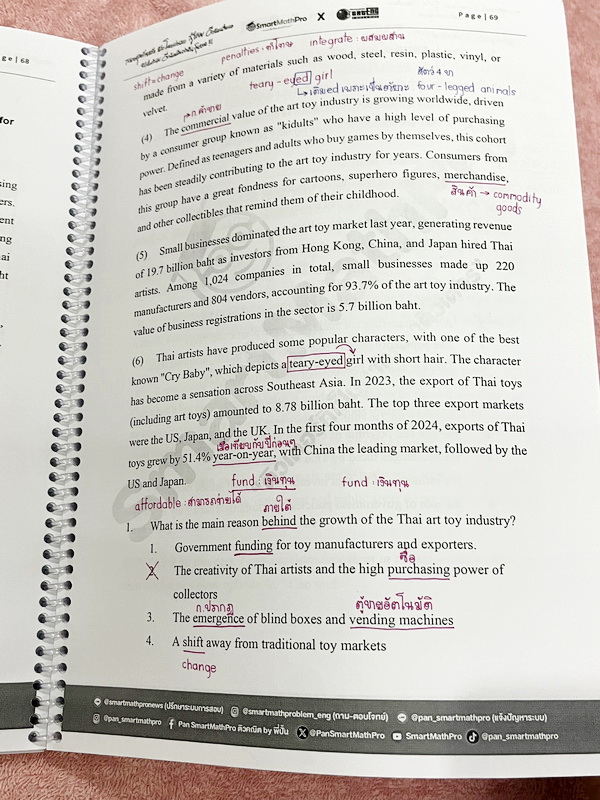 SmartMathPro X
P a g e | 69
g e | 68
penalties : ค่าปรับ integrate : ผสมผสาน
shift = change
made from a variety of materials such as wood, steel, resin, plastic, vinyl, or
velvet.
teary-eyed girl
สัตว์ 4 ขา
four-legged animals
(4) The commercial value of the art toy industry is growing worldwide, driven
by a consumer group known as "kidults" who have a high level of purchasing
power. Defined as teenagers and adults who buy games by themselves, this cohort
has been steadily contributing to the art toy industry for years. Consumers from
this group have a great fondness for cartoons, superhero figures, merchandise,
and other collectibles that remind them of their childhood.
สินค้า → commodity
goods
(5) Small businesses dominated the art toy market last year, generating revenue
of 19.7 billion baht as investors from Hong Kong, China, and Japan hired Thai
artists. Among 1,024 companies in total, small businesses made up 220
manufacturers and 804 vendors, accounting for 93.7% of the art toy industry. The
value of business registrations in the sector is 5.7 billion baht.
(6) Thai artists have produced some popular characters, with one of the best
known "Cry Baby", which depicts a teary-eyed girl with short hair. The character
has become a sensation across Southeast Asia. In 2023, the export of Thai toys
(including art toys) amounted to 8.78 billion baht. The top three export markets
were the US, Japan, and the UK. In the first four months of 2024, exports of Thai
เมื่อเทียบกับปีก่อนๆ
toys grew by 51.4% year-on-year, with China the leading market, followed by the
US and Japan.
fund : เงินทุน fund : เงินทุน
affordable : สามารถจ่ายได้ ภายใต้
1. What is the main reason behind the growth of the Thai art toy industry?
1. Government funding for toy manufacturers and exporters.
ซื้อ
The creativity of Thai artists and the high purchasing power of
collectors
ก.ปรากฏ ตู้ขายอัตโนมัติ
3. The emergence of blind boxes and vending machines
4. A shift away from traditional toy markets
change
@smartmathpronews (ปรึกษาระบบการสอบ) @smartmathproblem_eng (ถาม-ตอบโจทย์) @pan_smartmathpro (แจ้งปัญหาระบบ)
@pan_smartmathpro Pan SmartMathPro ติวคณิต by พี่ปั้น @PanSmartMathPro SmartMathPro @pan_smartmathpro